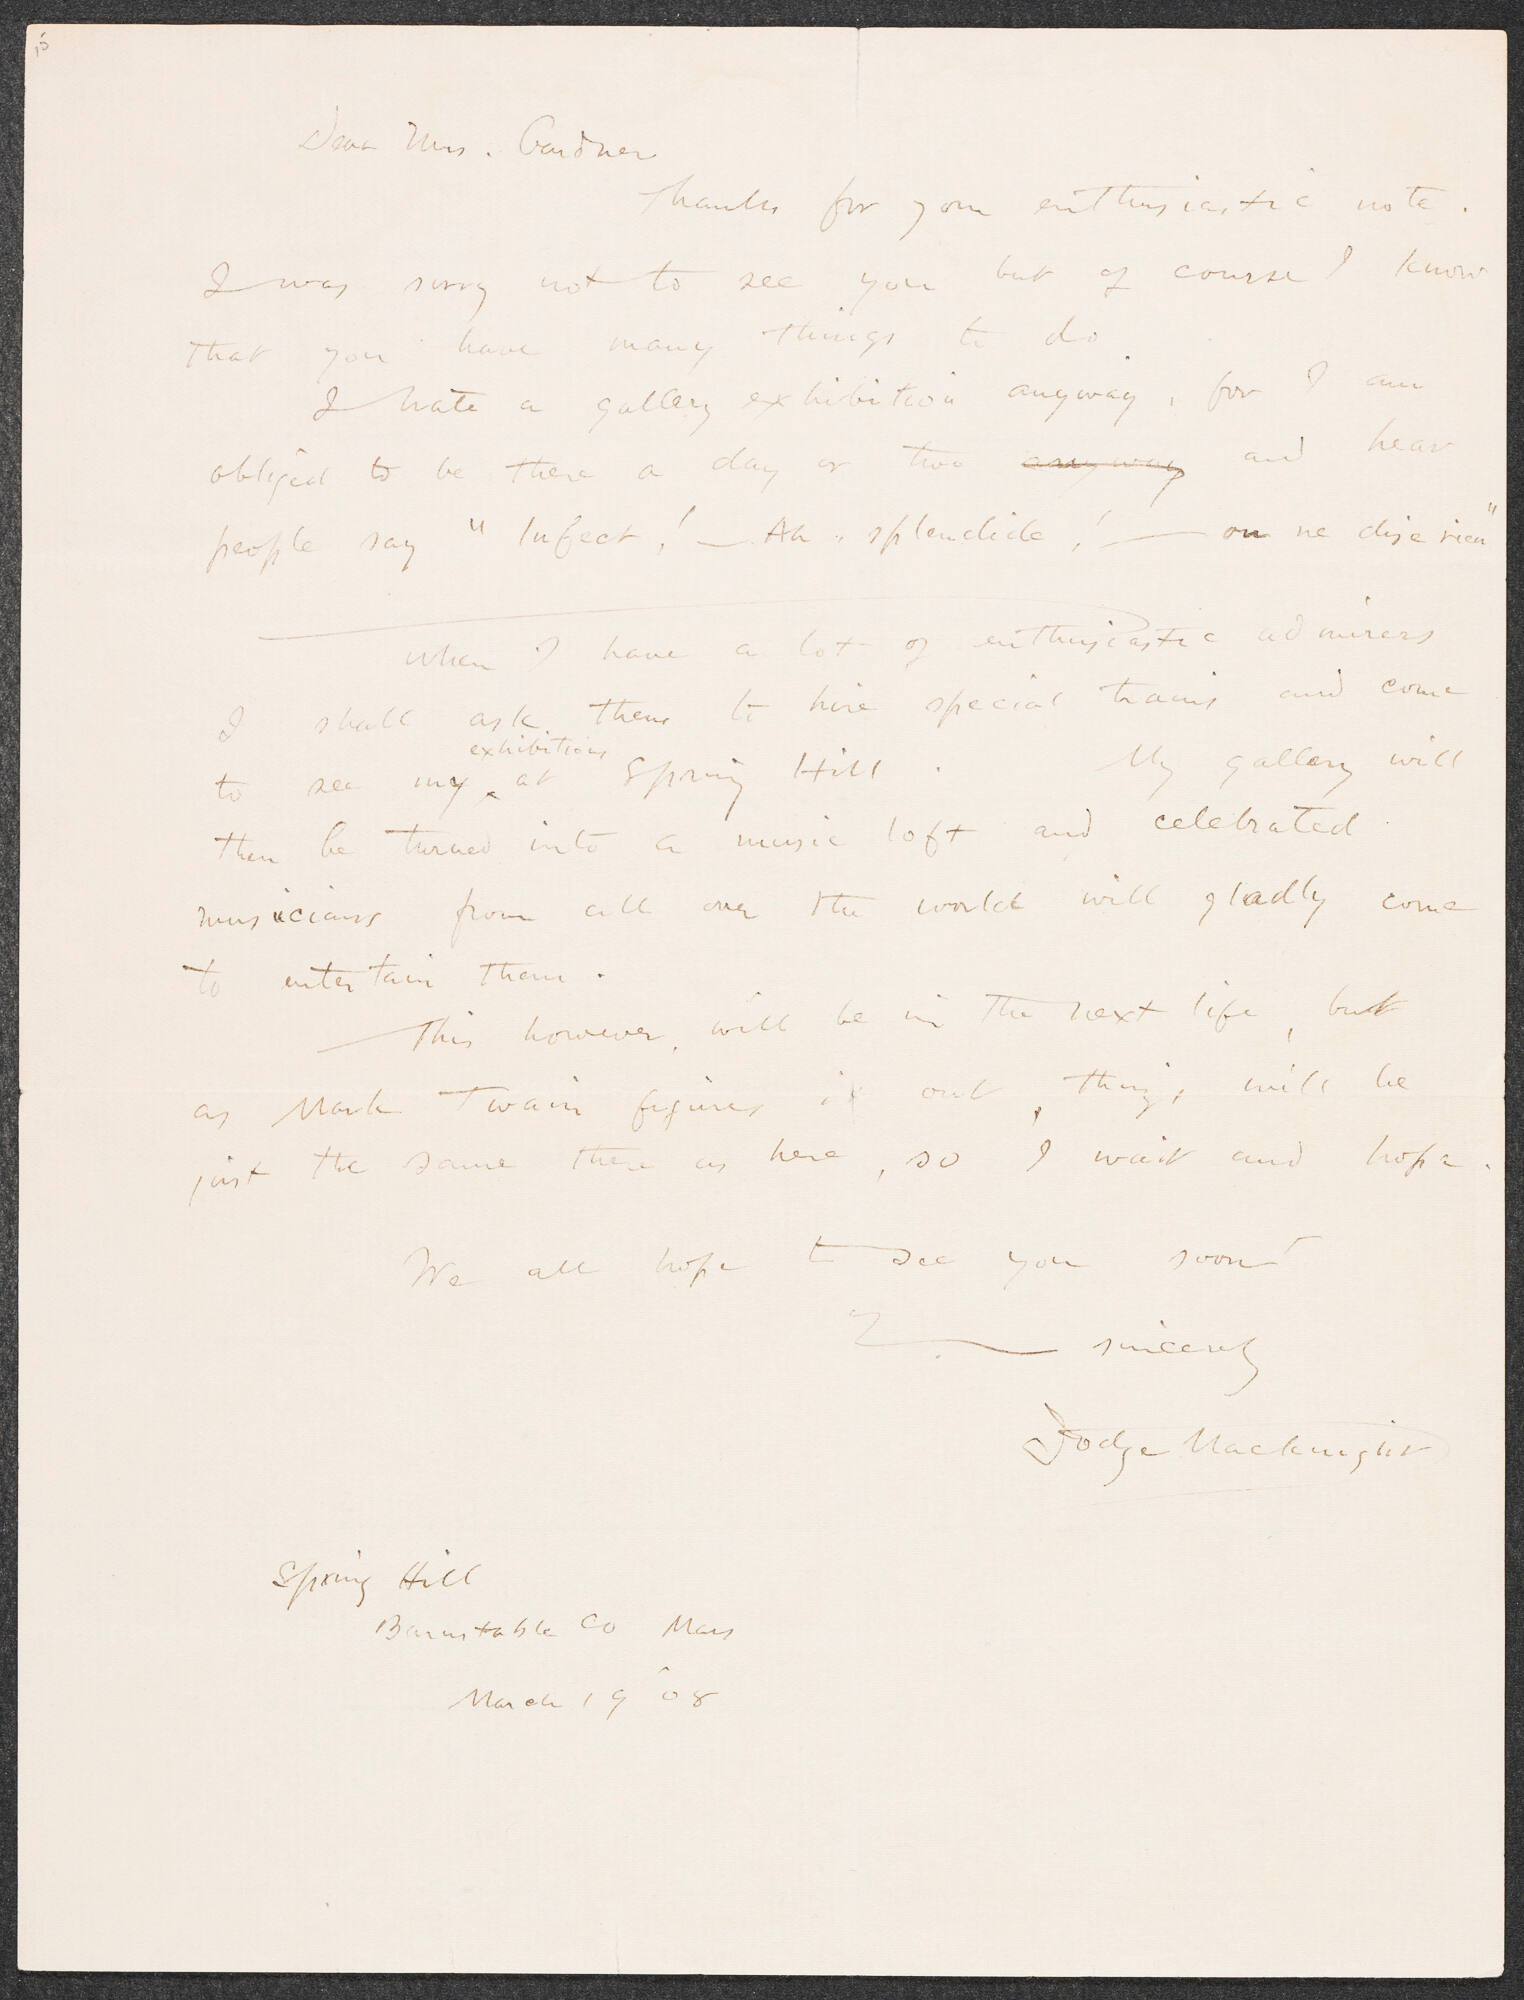 15
Dear Mrs. Gardner
Thanks for your enthusiastic note.
I was sorry not to see you but of course I know
that you have many things to do.
I hate a gallery exhibition anyway, for I am
obliged to be there a day or two anyway and hear
people say " Infect! — Ah, splendide! — on ne dise rien"
When I have a lot of enthusiastic admirers
I shall ask them to hire special trains and come
exhibitions
to see my ^ at Spring Hill. My gallery will
then be turned into a music loft and celebrated
musicians from all over the world will gladly come
to entertain them.
— This however, will be in the next life, but
as Mark Twain figures it out, things will be
just the same there as here, so I wait and hope.
We all hope to see you soon
sincerely
Dodge Macknight
Spring Hill
Barnstable Co Mass
March 19 '08